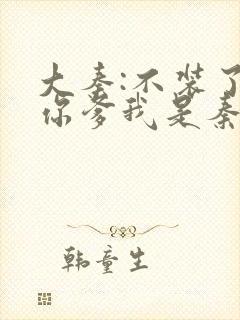 大秦:不装了
你爹我是秦
韩童生